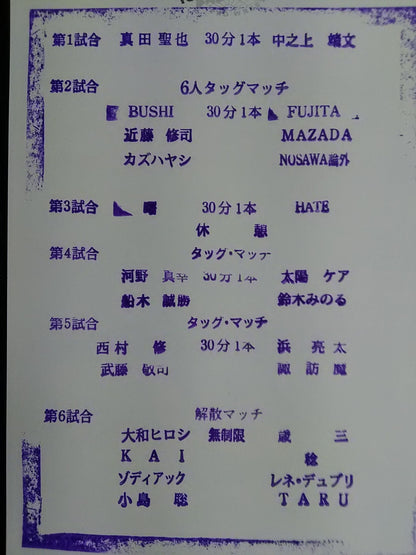 第1試合 真田聖也 30分1本 中之上 靖文
第2試合 6人タッグマッチ
BUSHI 30分1本 FUJITA
近藤 修司 MAZADA
カズハヤシ NOSAWA論外
第3試合 曙 30分1本 HATE
休 憩
第4試合 タッグ・マッチ
河野 真幸 30分1本 太陽 ケア
船木 誠勝 鈴木みのる
第5試合 タッグ・マッチ
西村 修 30分1本 浜 亮太
武藤 敬司 諏訪魔
第6試合 解散マッチ
大和ヒロシ 無制限 歳 三
K A I 稔
ゾディアック レネ・デュプリ
小島 聡 T A R U